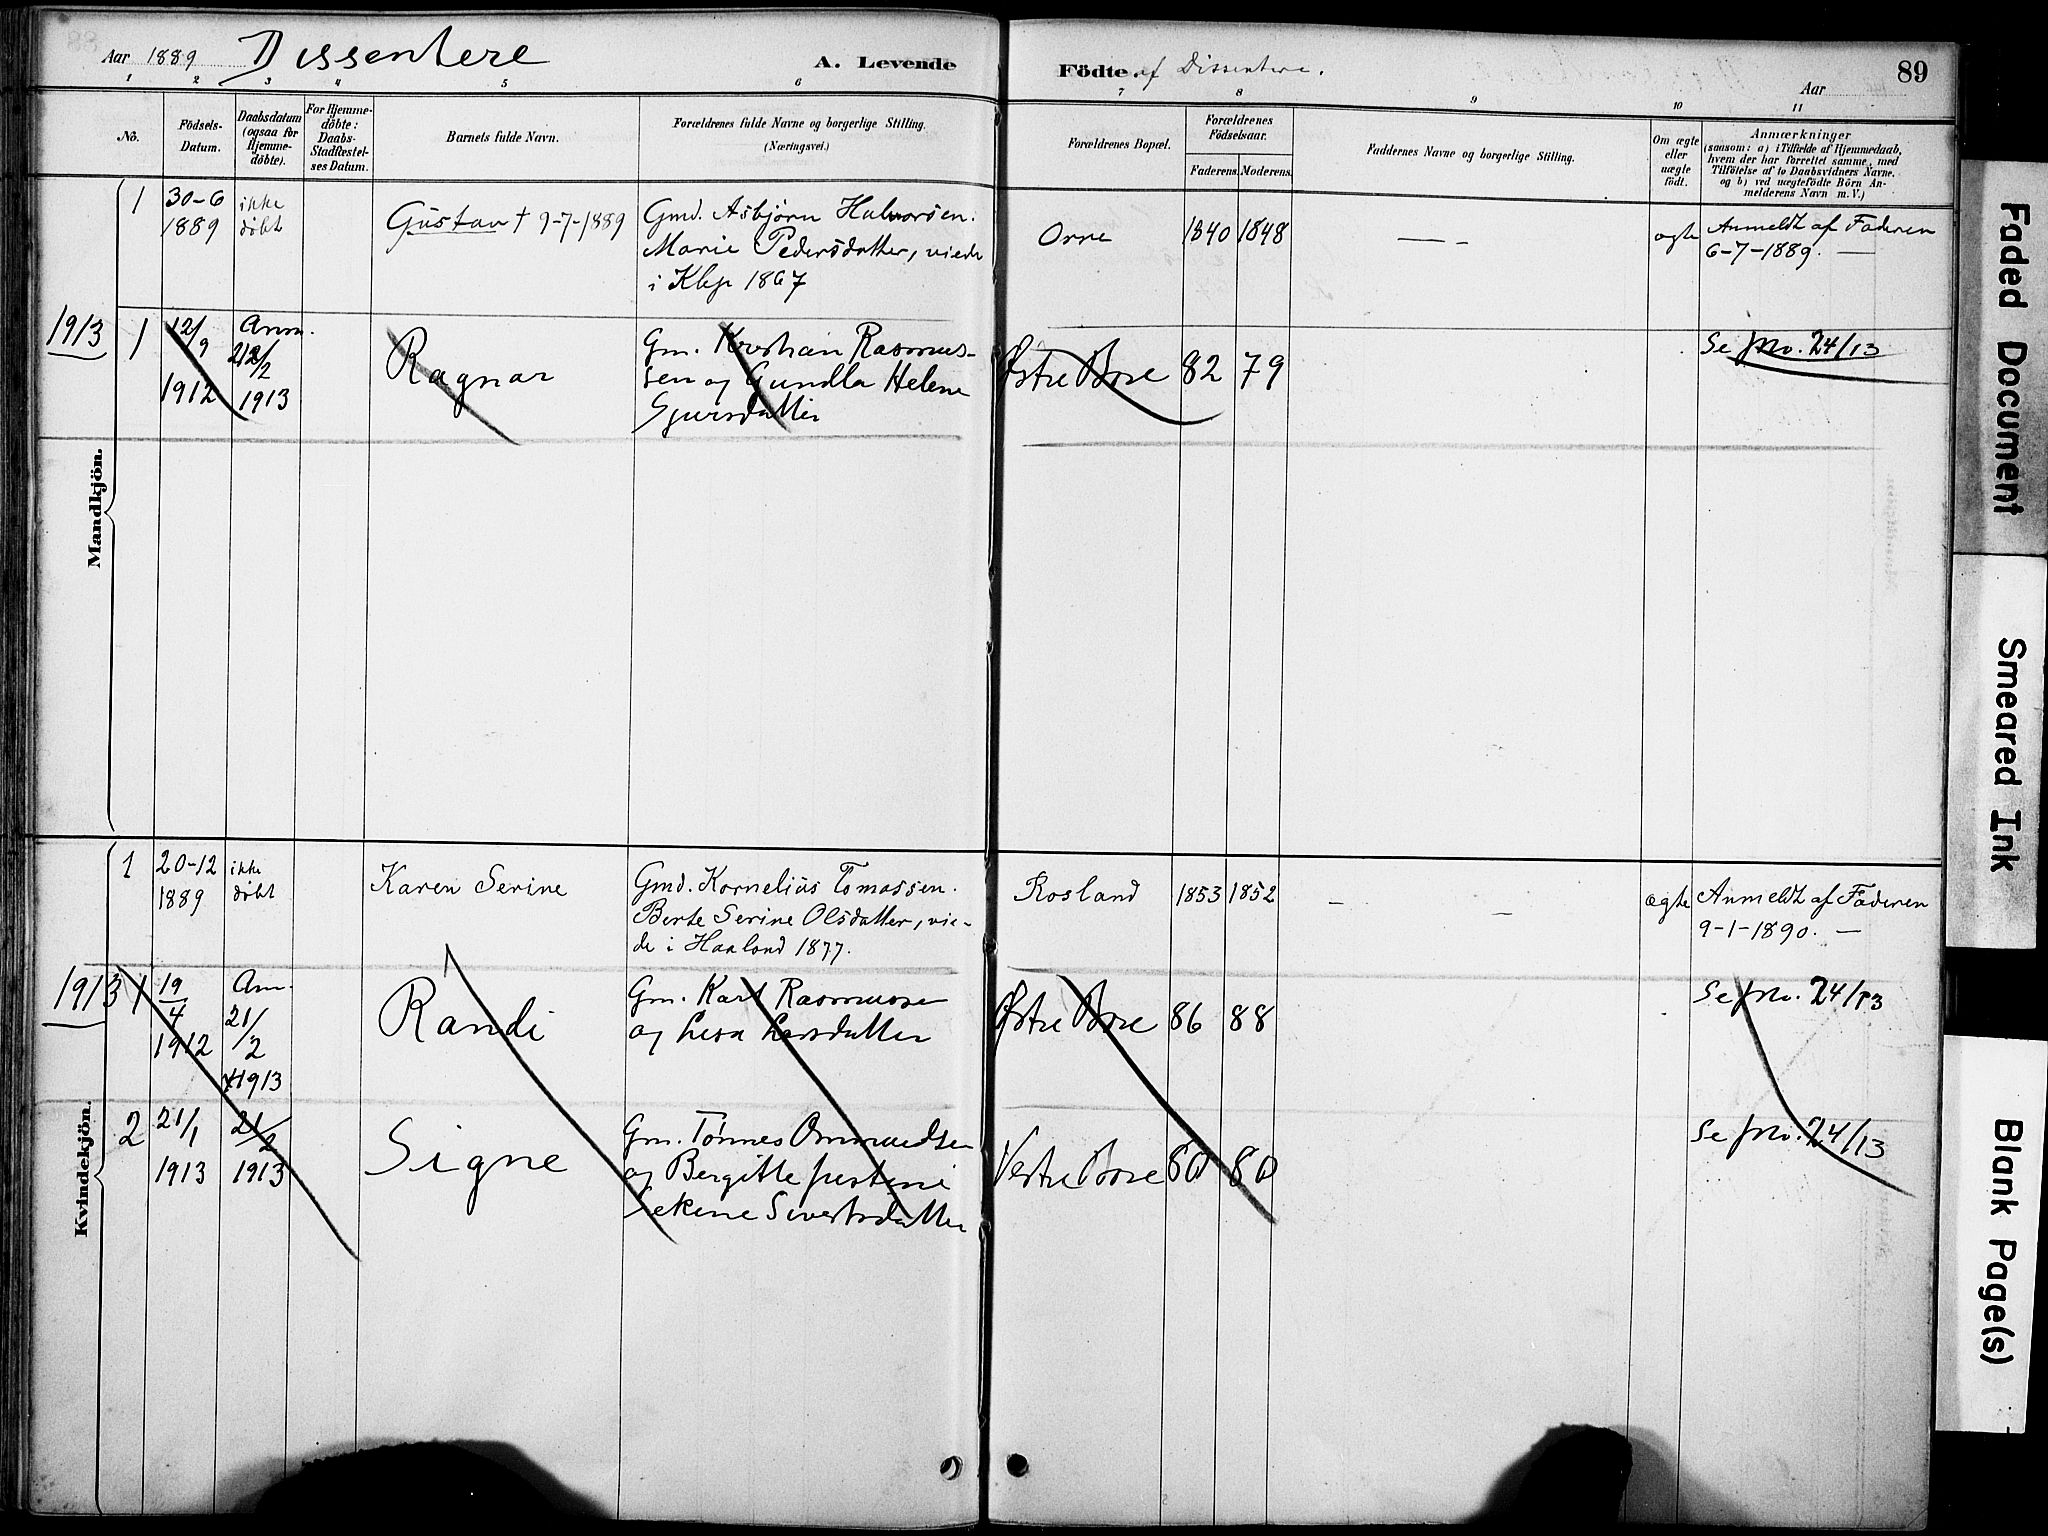 Aar 1889 Dissentere A. Levende Födte. af Dissentere. Aar 89
1 2 3 4 5 6 7 8 9 10 11
No.
Födsels-Datum.
Daabsdatum (ogsaa for Hjemmedöbte).
For Hjemmedöbte: Daabs-Stadfæstelses Datum.
Barnets fulde Navn.
Forældrenes fulde Navne og borgerlige Stilling.
(Næringsvei.)
Forældrenes Bopæl.
Forældrenes Födselsaar.
Faderens. Moderens.
Faddernes Navne og borgerlige Stilling.
Om ægte eller uægte födt.
Anmærkninger
(saasom: a) i Tilfælde af Hjemmedaab,
hvem der har forrettet samme, med
Tilföielse af to Daabsvidners Navne.
og b) ved uægtefödte Börn An-
melderens Navn m. V.)
Mandkjön.
1 30-6 1889 ikke döbt Gustav † 9-7-1889 Gmd. Asbjørn Halvorsen.
Marie Pedersdatter, viede
i Klep 1867
Orre 1840 1848 — - ægte Anmeldt af Faderen
6-7-1889. —
1913 1 12/9 1912 Anm. 212/2 1913 Ragnar Gm. Kristian Rasmus-
sen og Gundla Helene
Sjursdatter
Østre Bore 82 79 Se No. 24/13
Kvindekjön.
1 20-12 1889 ikke döbt Karen Serine Gmd. Kornelius Tomassen.
Berte Serine Olsdatter, vie-
de i Haaland 1877.
Rosland 1853 1852 - - ægte Anmeldt af Faderen
9-1-1890. —
1913 1 19/4 1912 Am. 21/2 1913 Randi Gm. Karl Rasmussen
og Lisa Larsdatter
Østre Bore 86 88 Se No. 24/13
2 21/1 1913 21/2 1913 Signe Gm. Tønnes Ommundsen
og Bergitte Justine
Sekine Sivertsdatter
Vestre Bore 80 80 Se No. 24/13
Faded Document
Smeared Ink
Blank Page(s)